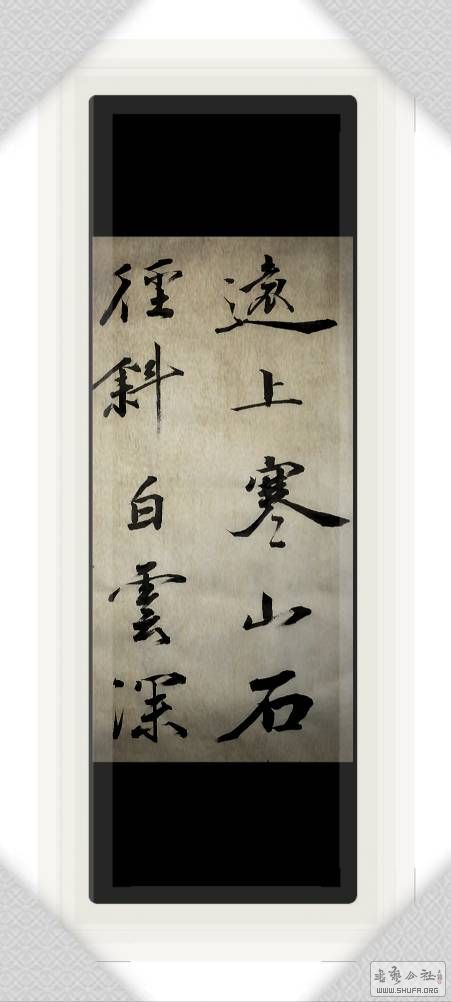 遠上寒山石
徑斜白雲深
書藝公社
WWW.SHUFA.ORG